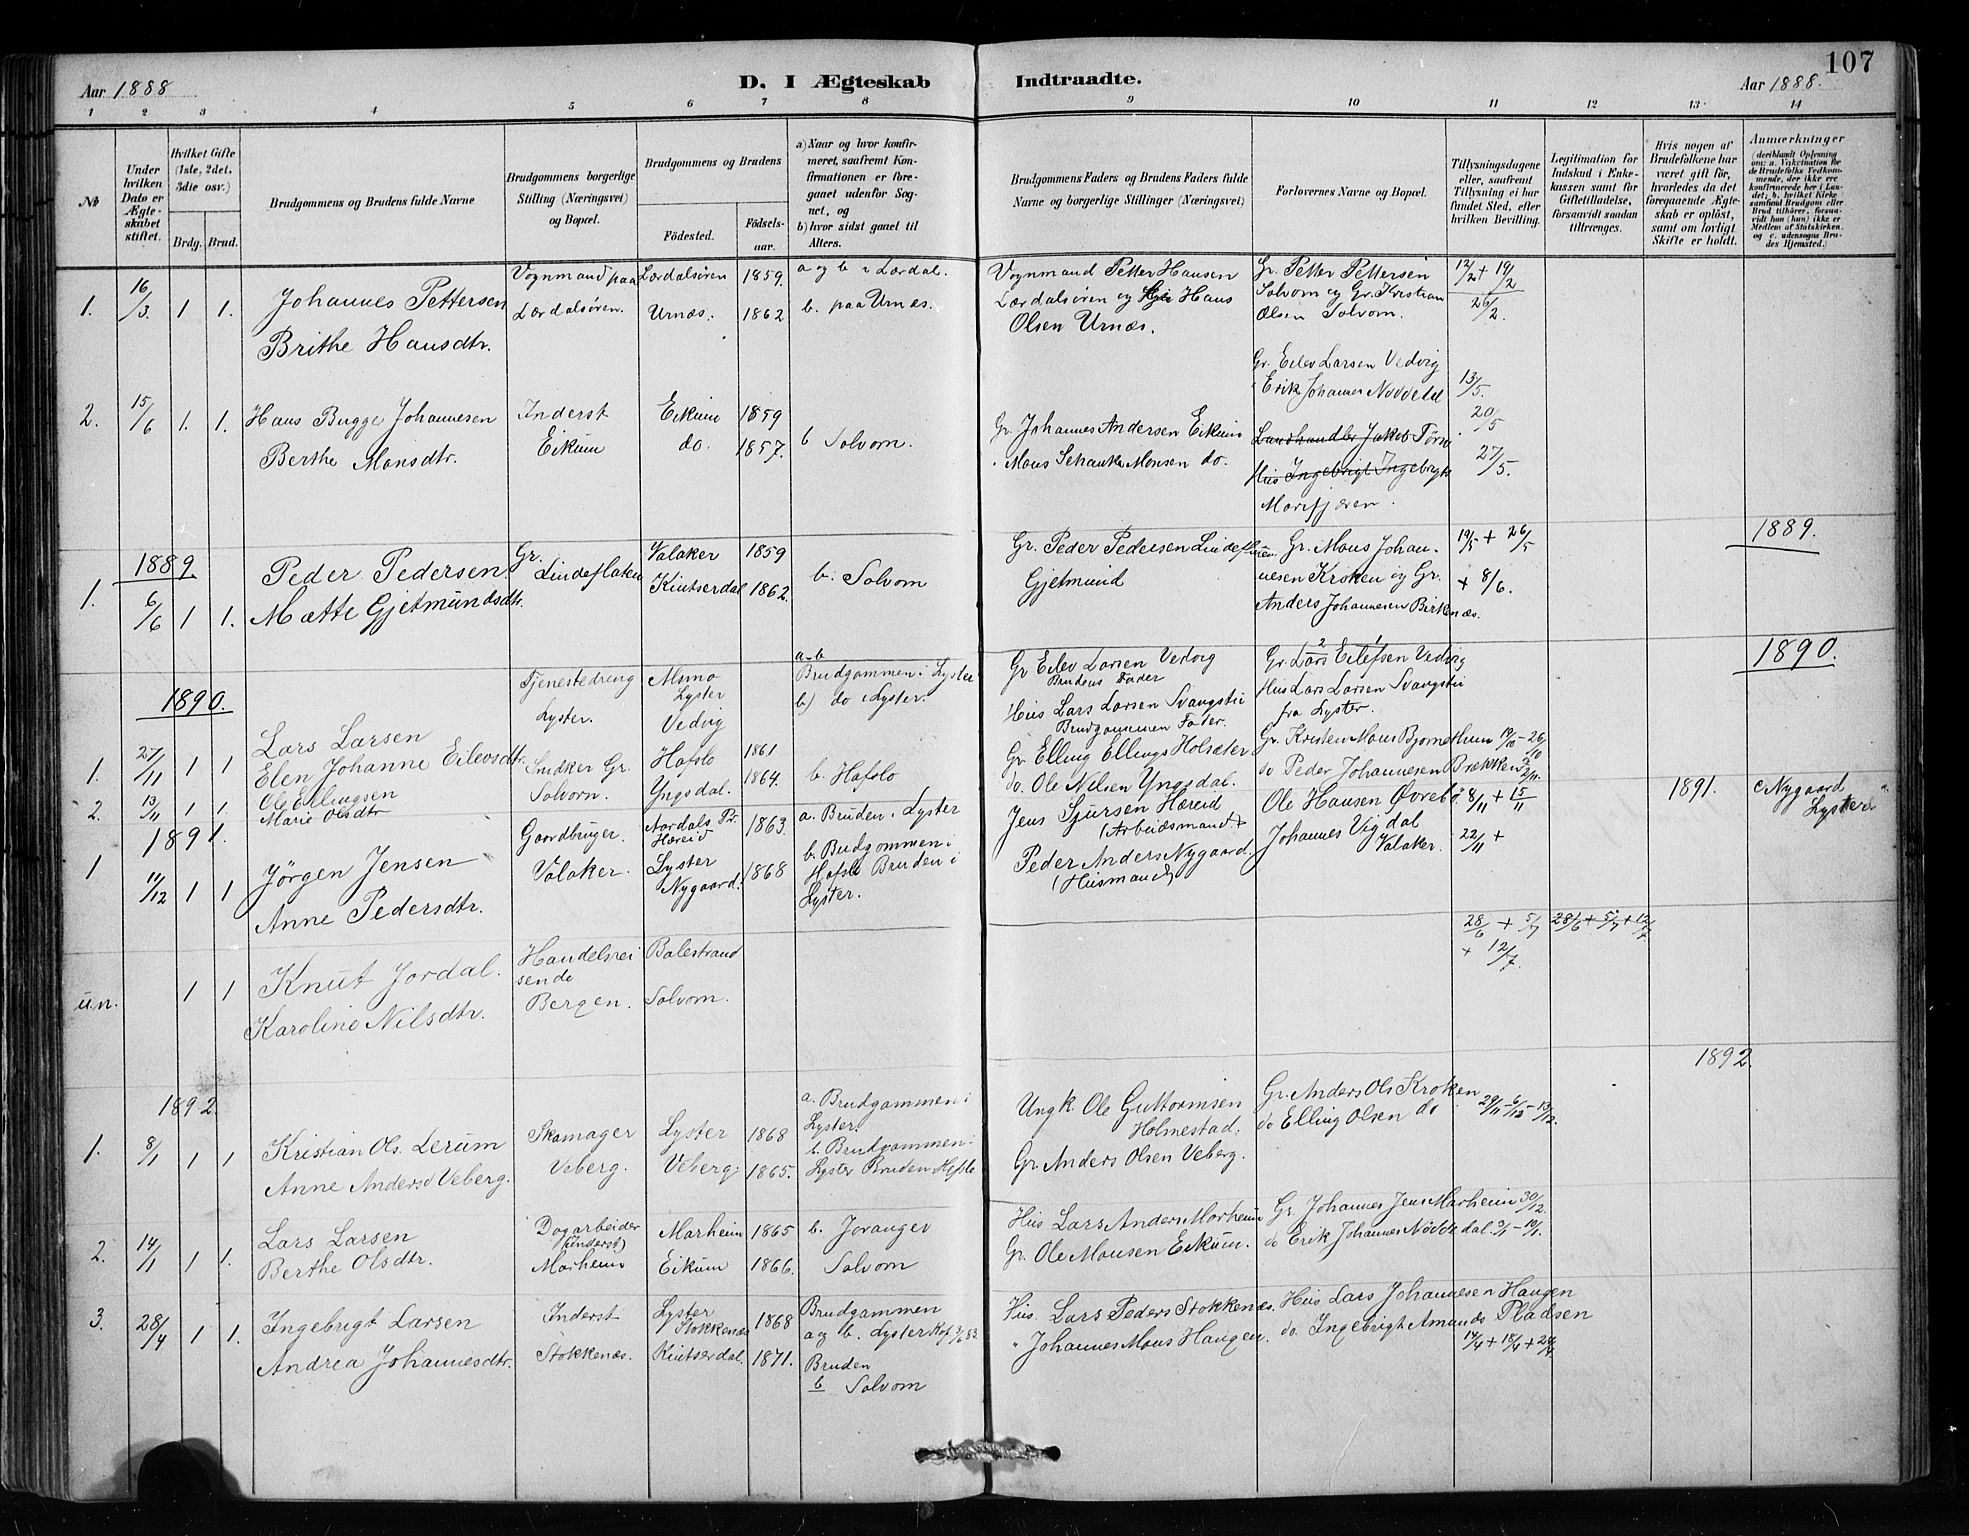 107
Aar 1888
D. I Ægteskab Indtraadte.
Aar 1888.
1 2 3 4 5 6 7 8 9 10 11 12 13 14
№
Under hvilken Dato er Ægteskabet stiftet.
Hvilket Gifte (1ste, 2det, 3die osv.)
Brdg. Brud.
Brudgommens og Brudens fulde Navne
Brudgommens borgerlige Stilling (Næringsvei) og Bopæl.
Brudgommens og Brudens
Födested.
Födselsaar.
a) Naar og hvor konfirmeret, saafremt Konfirmationen er foregaaet udenfor Sognet, og
b) hvor sidst gaaet til Alters.
Brudgommens Faders og Brudens Faders fulde Navne og borgerlige Stillinger (Næringsvei)
Forlovernes Navne og Bopæl.
Tillysningsdagene eller, saafremt Tillysning ei har fundet Sted, efter hvilken Bevilling.
Legitimation for Indskud i Enkekassen samt for Giftetilladelse, forsaavidt saadan tiltrænges.
Hvis nogen af Brudefolkene har været gift för, hvorledes da det foregaaende Ægteskab er oplöst, samt om lovligt Skifte er holdt.
Anmærkninger (deriblandt Oplysning om: a. Vakcination for de Brudefolks Vedkommende, der ikke ere konfirmerede her i Landet; b. hvilket Kirkesamfund Brudgom eller Brud tilhörer, forsaavidt han (hun) ikke er Medlem af Statskirken, og c. udensogns Brudes Hjemsted.)
1. 16/3. 1 1. Johannes Pettersen
Brithe Hansdtr.
Vognmand paa
Lærdalsören.
Lærdalsören 1859.
Urnæs. 1862
a og b i Lærdal.
b. paa Urnæs.
Vognmand Petter Hansen
Lærdalsören og Hans
Olsen Urnæs.
Gr. Petter Pettersen
Solvorn og Gr. Kristian
Olsen Solvorn.
12/2 + 19/2
26/2.
2. 15/6 1. 1. Hans Bugge Johannesen
Berthe Monsdtr.
Inderst
Eikum
Eikum 1859
do. 1857.
b Solvorn.
Gr. Johannes Andersen Eikum
" Mons Schanke Monsen do.
Gr. Eilev Larsen Vedvig
" Erik Johannes Nøddedal
Landhandler Jakob
Hus Ingebrigt Ingebrigts
Marifjæren.
13/5.
20/5
27/5.
1889.
1889.
1. 6/6 1 1. Peder Pedersen
Mætte Gjetmundsdtr.
Gr.
Lindeflaten
Valaker 1859
Kintserdal 1862.
b. Solvorn
Gr. Peder Pedersen
Gjetmund
Gr. Mons Johan-
nesen Kroken og Gr.
Anders Johannesen Birkenæs.
19/5 + 26/5
+ 8/6.
1890.
1890.
1. 27/11 1 1 Lars Larsen
Elen Johanne Eilevsdtr.
Tjenestedreng
Lyster.
Lyster
Vedvig
a-b
Brudgommen i Lyster
b) do i Lyster.
Gr Eilev Larsen Vedvig
Brudens Fader
Hus Lars Larsen Svangstu
Brudgommen Fader.
Gr. Lars Eilefsen Vedvig
Hus Lars Larsen Svangstu
fra Lyster.
2. 13/11 1 1. Ole Ellingsen
Marie Olsdtr
Snedker Gr.
Solvorn.
Hafslo 1861
Yngsdal. 1864.
b. Hafslo
Gr. Elling Ellings Holsæter
do. Ole Nilsen Yngsdal.
Gr. Kristen Mons Bjornethun
do Peder Johannesen Brækken
19/10 - 26/10
2/11.
1891.
1891.
1 11/12 1 1 Jörgen Jensen
Anne Pedersdtr.
Gaardbruger.
Valaker.
Aardals Pr.
Hæreid 1863.
Lyster
Nygaard. 1868
a. Bruden i Lyster
b. Brudgommen i
Hafslo Bruden i
Lyster.
Jens Sjursen Hæreid
(Arbeidsmand)
Peder Anders Nygaard.
(Husmand)
Ole Hansen Øvrebö
Johannes Vigdal
Valaker.
8/11 + 15/11
22/11 +
c Nygaard
Lyster
u.n. 1 1 Knut Jordal.
Karoline Nilsdtr.
Handelsrei
sende
Bergen.
Balestrand
Solvorn.
28/6 + 5/7
+ 12/7.
28/6 + 5/7 + 12/7
1892.
1892
1. 8/1 1 1 Kristian Ols. Lerum
Anne Anders Veberg.
Skomager
Veberg.
Lyster 1868
Veberg. 1865.
a. Brudgommen i
Lyster.
b. Brudgommen i
Lyster Bruden Hafslo
Ungk. Ole Guttormsen
Holmestad.
Gr. Anders Olsen Veberg.
Gr. Anders Ols Kroken
do Elling Olsen do
29/11 - 6/12 - 13/12.
2. 14/1 1 1. Lars Larsen
Berthe Olsdtr.
Dagarbeider
(Inderst)
Marheim
Marheim 1865
Eikum 1866.
b. Joranger
Solvorn
Hus Lars Anders Marheim
Gr. Ole Monsen Eikum.
Gr. Johannes Jens Marheim
do Erik Johannes Nøddedal.
30/12
3/1 - 10/1.
3. 28/4 1 1. Ingebrigt Larsen
Andrea Johannesdtr.
Inderst
Stokkenæs.
Lyster
Stokkenæs 1868
Kintserdal. 1871.
Brudgammen
a og b. Lyster Kof. 3/6 83
Bruden
b Solvorn
Hus. Lars Peders Stokkenæs.
" Johannes Mons Haugen.
Hus Lars Johannesen Haugen
do. Ingebrigt Amunds Pladsen
17/4 + 18/4 + 24/4.